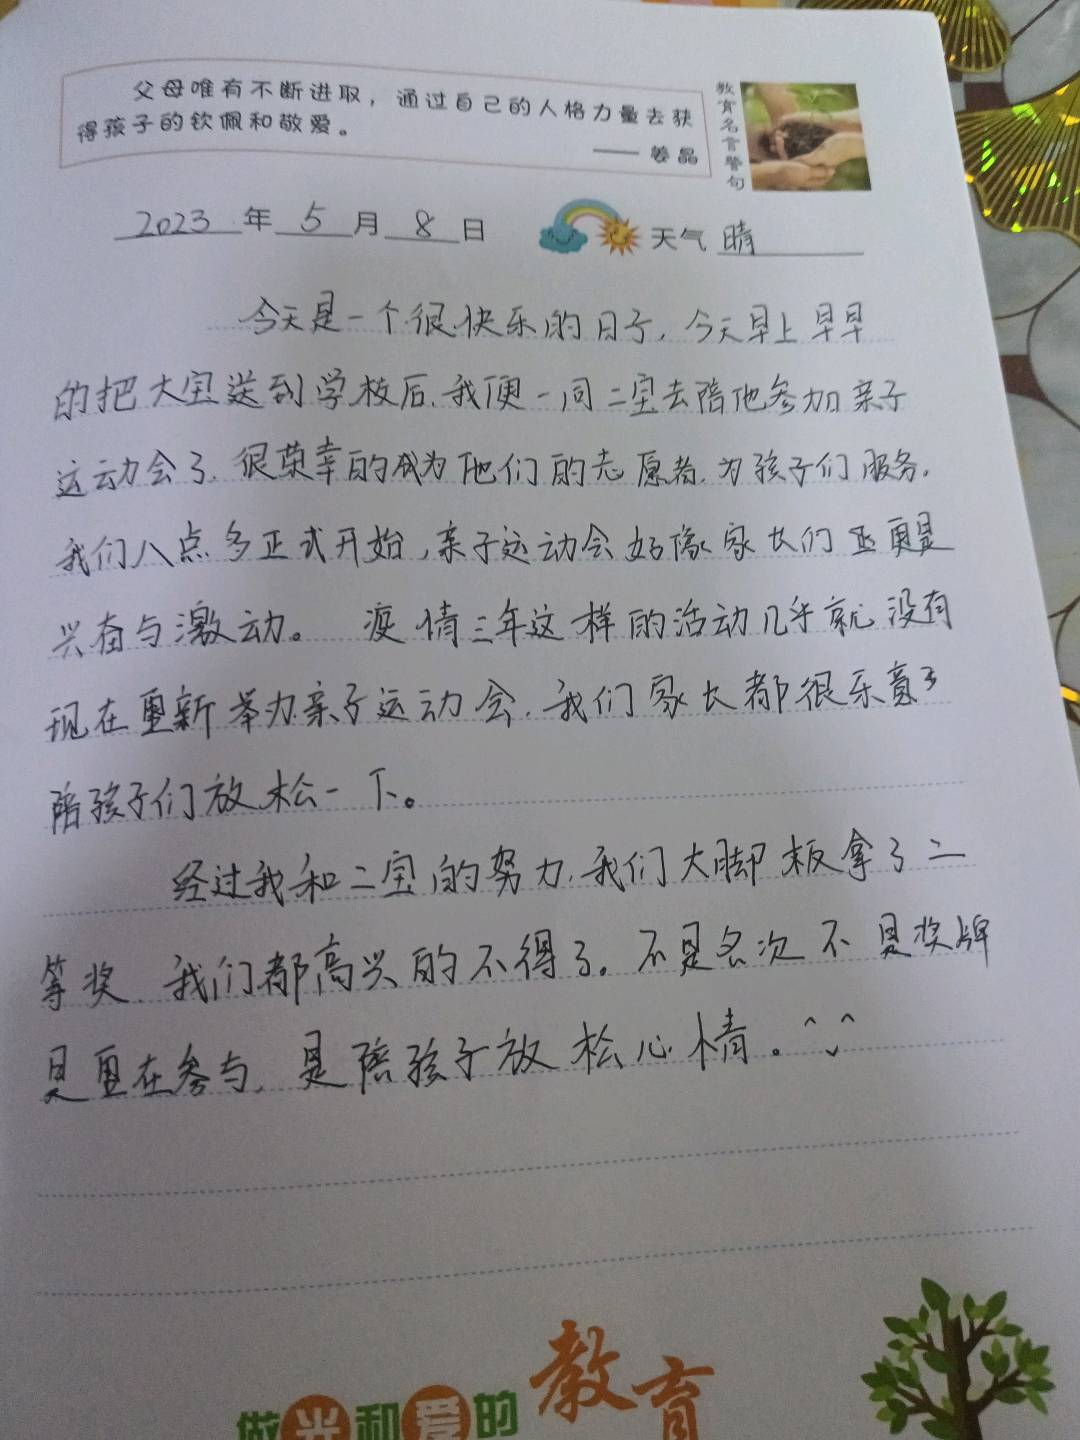 父母唯有不断进取，通过自己的人格力量去获
得孩子的钦佩和敬爱。
—— 姜晶
教育名言警句
2023年5月8日 天气 晴
今天是一个很快乐的日子，今天早上早早
的把大宝送到学校后，我便一同二宝去陪他参加亲子
运动会了，很荣幸的成为他们的志愿者，为孩子们服务，
我们八点多正式开始，亲子运动会好像家长们更是
兴奋与激动。 疫情三年这样的活动几乎就没有
现在重新举办亲子运动会，我们家长都很乐意了
陪孩子们放松一下。
经过我和二宝的努力，我们大脚板拿了二
等奖，我们都高兴的不得了。不是名次不是奖牌
是重在参与，是陪孩子放松心情。^ᴗ^
做光和爱的教育